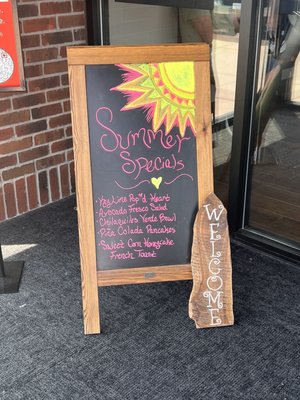 Summer
Specials
Avocado Fresco Salad
Chilaquiles Verde Bowl
Piña Colada Pancakes
Sweet Corn Honeycake
French Toast
WELCOME